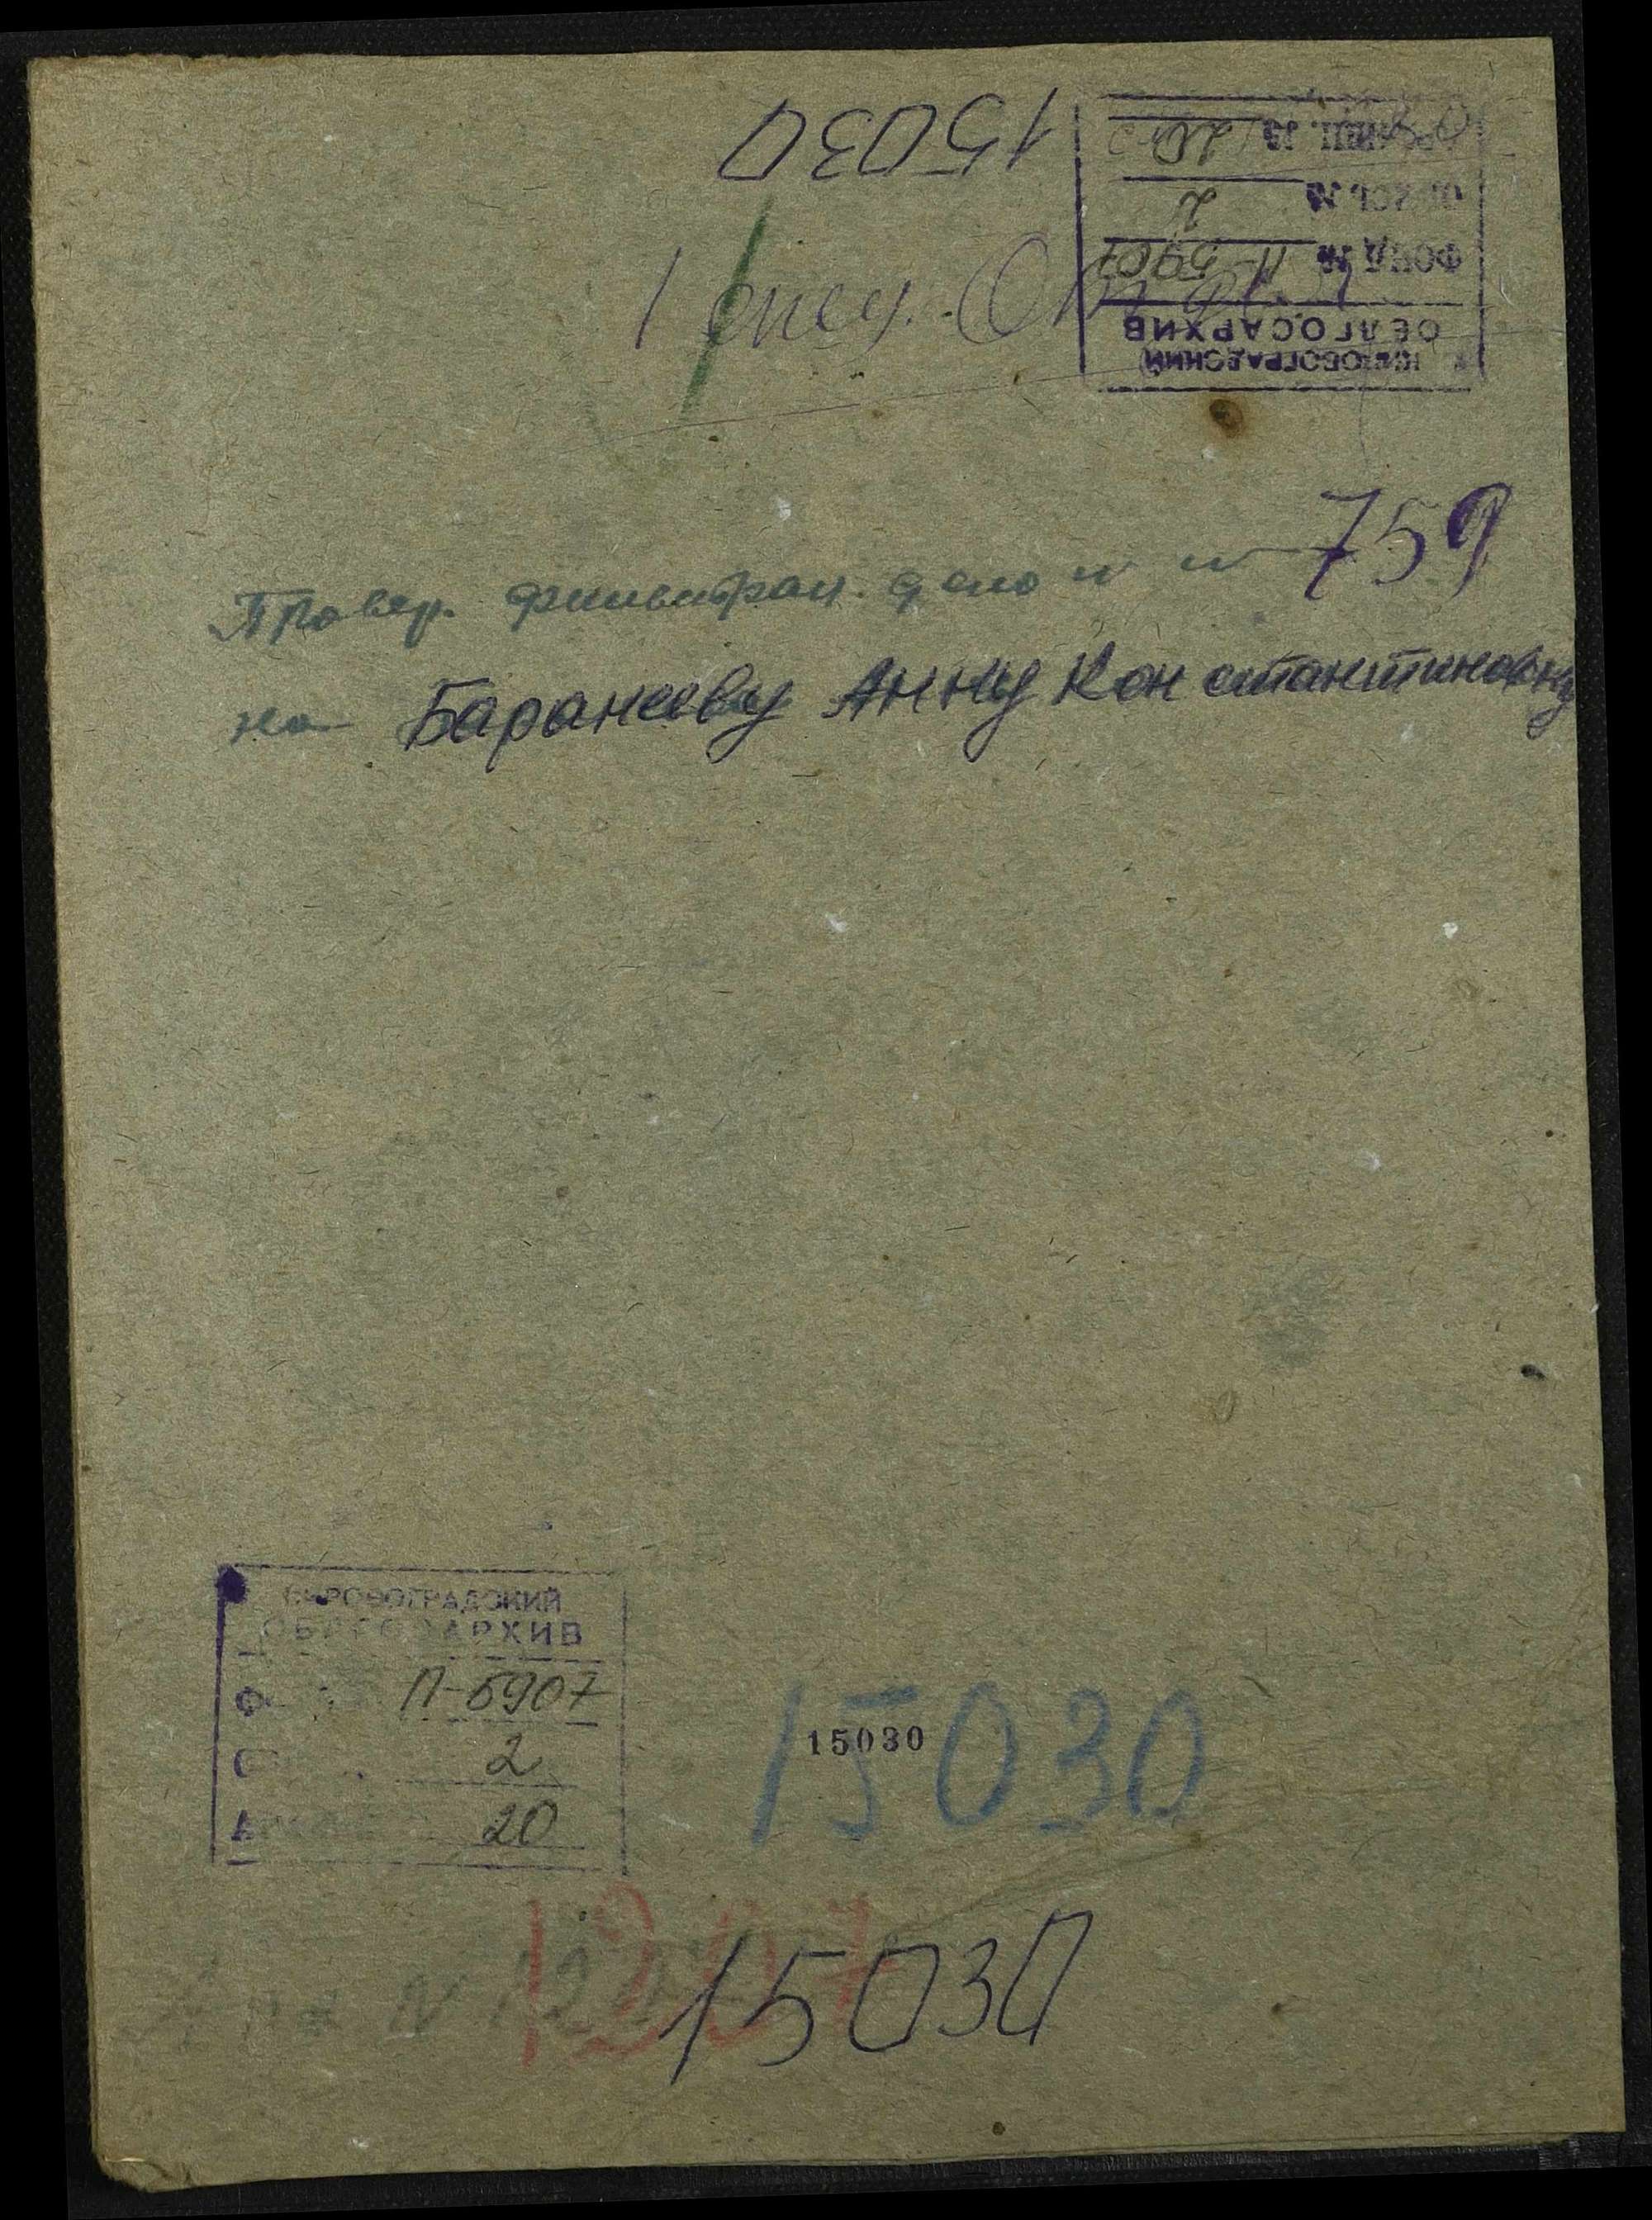 15030
КИРОВОГРАДСКИЙ
ОБЛГОСАРХИВ
ФОНД № П-5907
ОПИСЬ № 2
1
Провер. фильтрац. дело № 759
на Баранееву Анну Константиновну
КИРОВОГРАДСКИЙ
ОБЛГОСАРХИВ
П-5907
2
20
15030
15030
15030